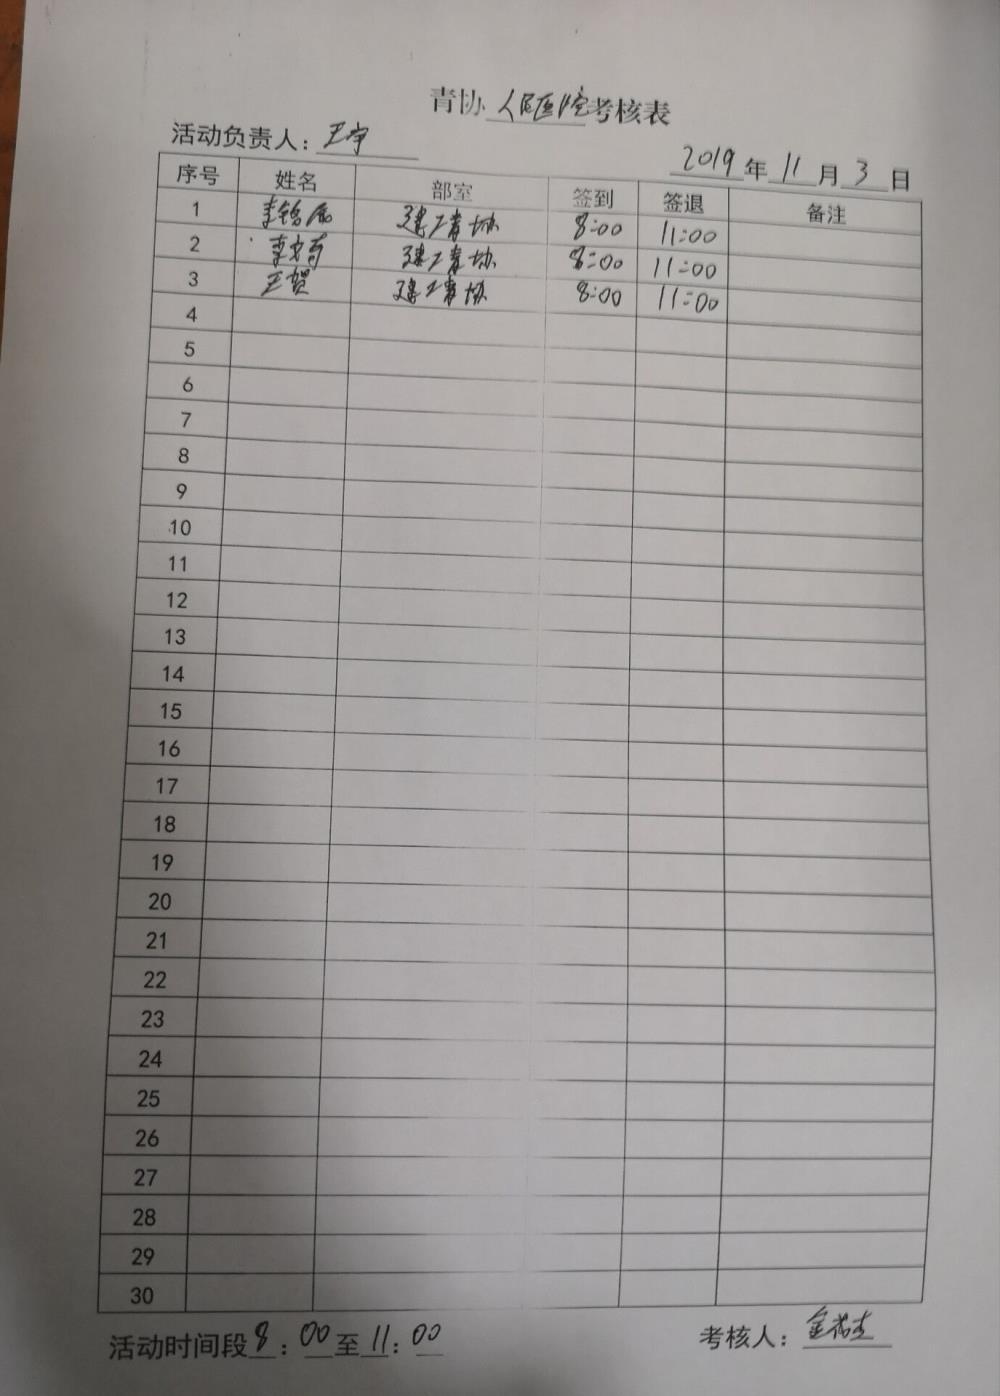 青协 人民医院 考核表
活动负责人: 王宇
2019 年 11 月 3 日
序号 姓名 部室 签到 签退 备注
1 李铭 建工青协 8:00 11:00
2 李文 建工青协 8:00 11:00
3 王贺 建工青协 8:00 11:00
4
5
6
7
8
9
10
11
12
13
14
15
16
17
18
19
20
21
22
23
24
25
26
27
28
29
30
活动时间段 8:00 至 11:00 考核人: 金